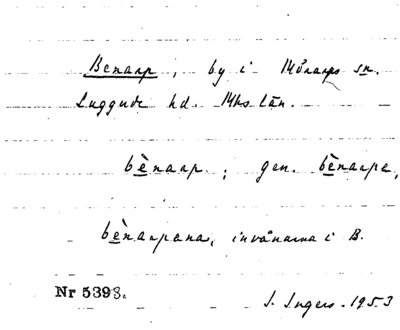 Benarp, by i Mörarps sn.
Luggude hd. Mhs län.
bènarp; gen. bènarpa,
bènarpana, invånarna i B.
Nr 5393.
I. Ingers. 1953